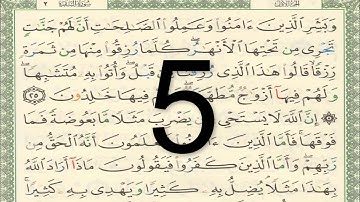 سورة البقرة
وَبَشِّرِ الَّذِينَ ءَامَنُوا وَعَمِلُوا الصَّالِحَاتِ أَنَّ لَهُمْ جَنَّاتٍ
تَجْرِى مِن تَحْتِهَا الْأَنْهَارُ كُلَّمَا رُزِقُوا مِنْهَا مِن ثَمَرَةٍ
رِّزْقًا قَالُوا هَذَا الَّذِى رُزِقْنَا قَبْلُ وَأُتُوا بِهِ مُتَشَابِهًا
وَلَهُمْ فِيهَا أَزْوَاجٌ مُّطَهَّرَةٌ وَهُمْ فِيهَا خَالِدُونَ ٢٥
إِنَّ اللَّهَ لَا يَسْتَحْىِ يَضْرِبَ مَثَلًا مَّا بَعُوضَةً فَمَا
فَوْقَهَا فَأَمَّا الَّذِينَ فَيَعْلَمُونَ أَنَّهُ الْحَقُّ مِن
رَّبِّهِمْ وَأَمَّا الَّذِينَ كَفَرُوا فَيَقُولُونَ مَاذَا أَرَادَ اللَّهُ
بِهَذَا مَثَلًا يُضِلُّ بِهِ كَثِيرًا وَيَهْدِى بِهِ كَثِيرًا
5